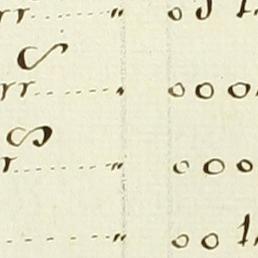 rr........"
S
rr........" 000
S
r........" 000
........" 001